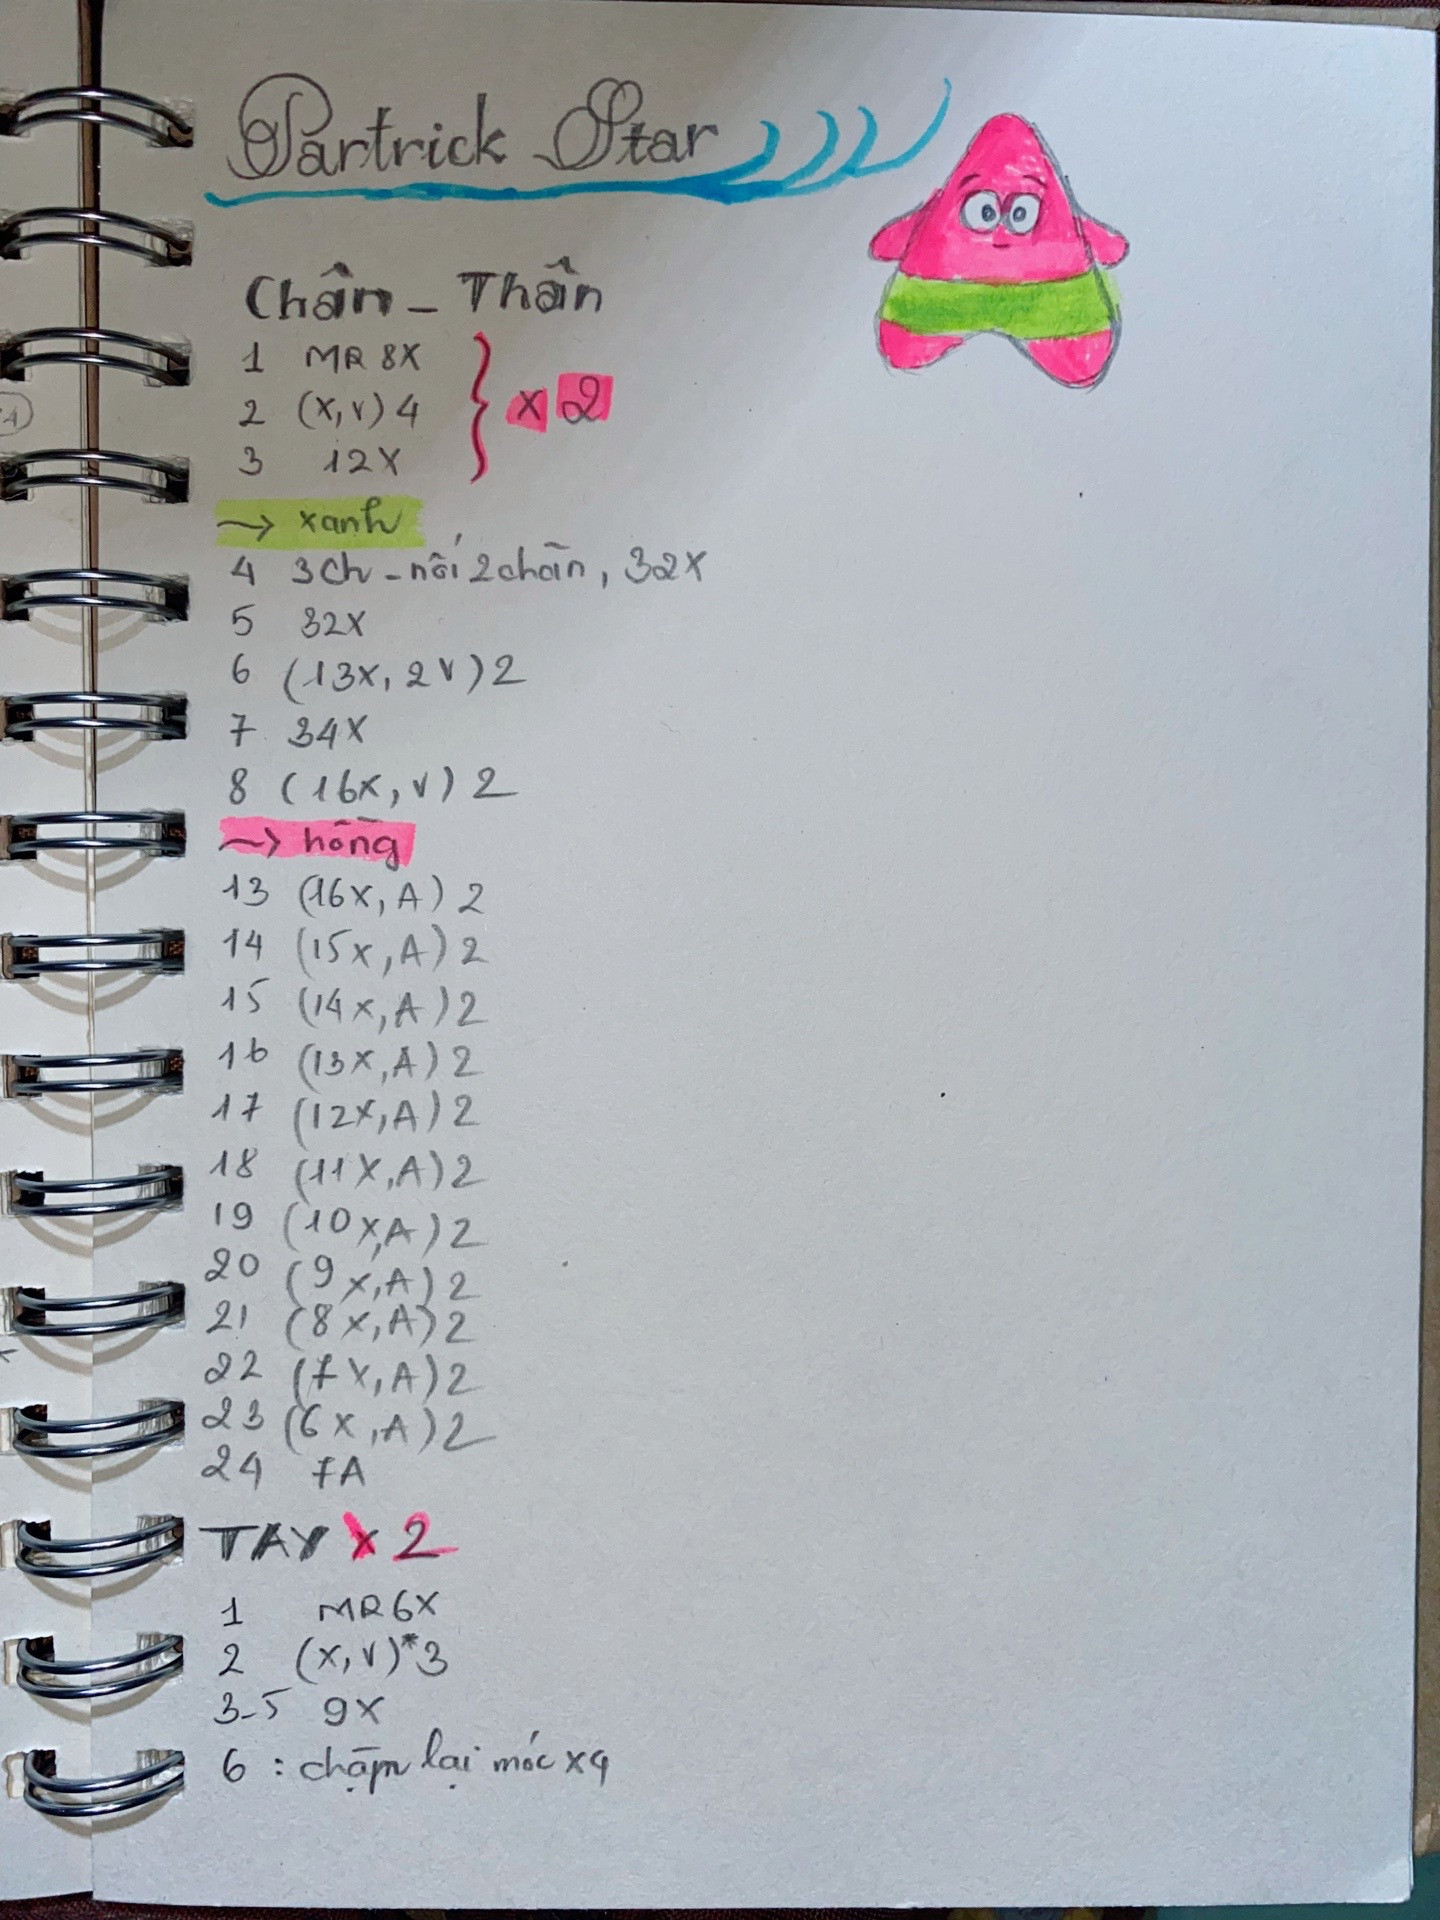 Partrick Star
Chân - Thân
1 MR 8X
2 (X, V) 4
3 12X
} x 2
→ xanh
4 3Ch - nối 2 chân, 32X
5 32X
6 (13X, 2V) 2
7 34X
8 (16X, V) 2
→ hồng
13 (16X, A) 2
14 (15X, A) 2
15 (14X, A) 2
16 (13X, A) 2
17 (12X, A) 2
18 (11X, A) 2
19 (10X, A) 2
20 (9X, A) 2
21 (8X, A) 2
22 (7X, A) 2
23 (6X, A) 2
24 7A
TAY X 2
1 MR 6X
2 (X, V)*3
3-5 9X
6 : chập lại móc x4